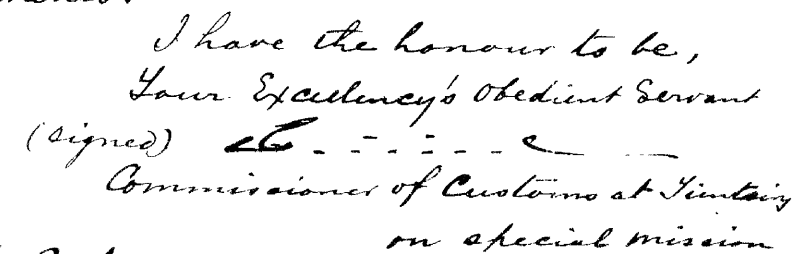 I have the honour to be,
Your Excellency's Obedient Servant
(signed)
Commissioner of Customs at Tientsin
on special mission